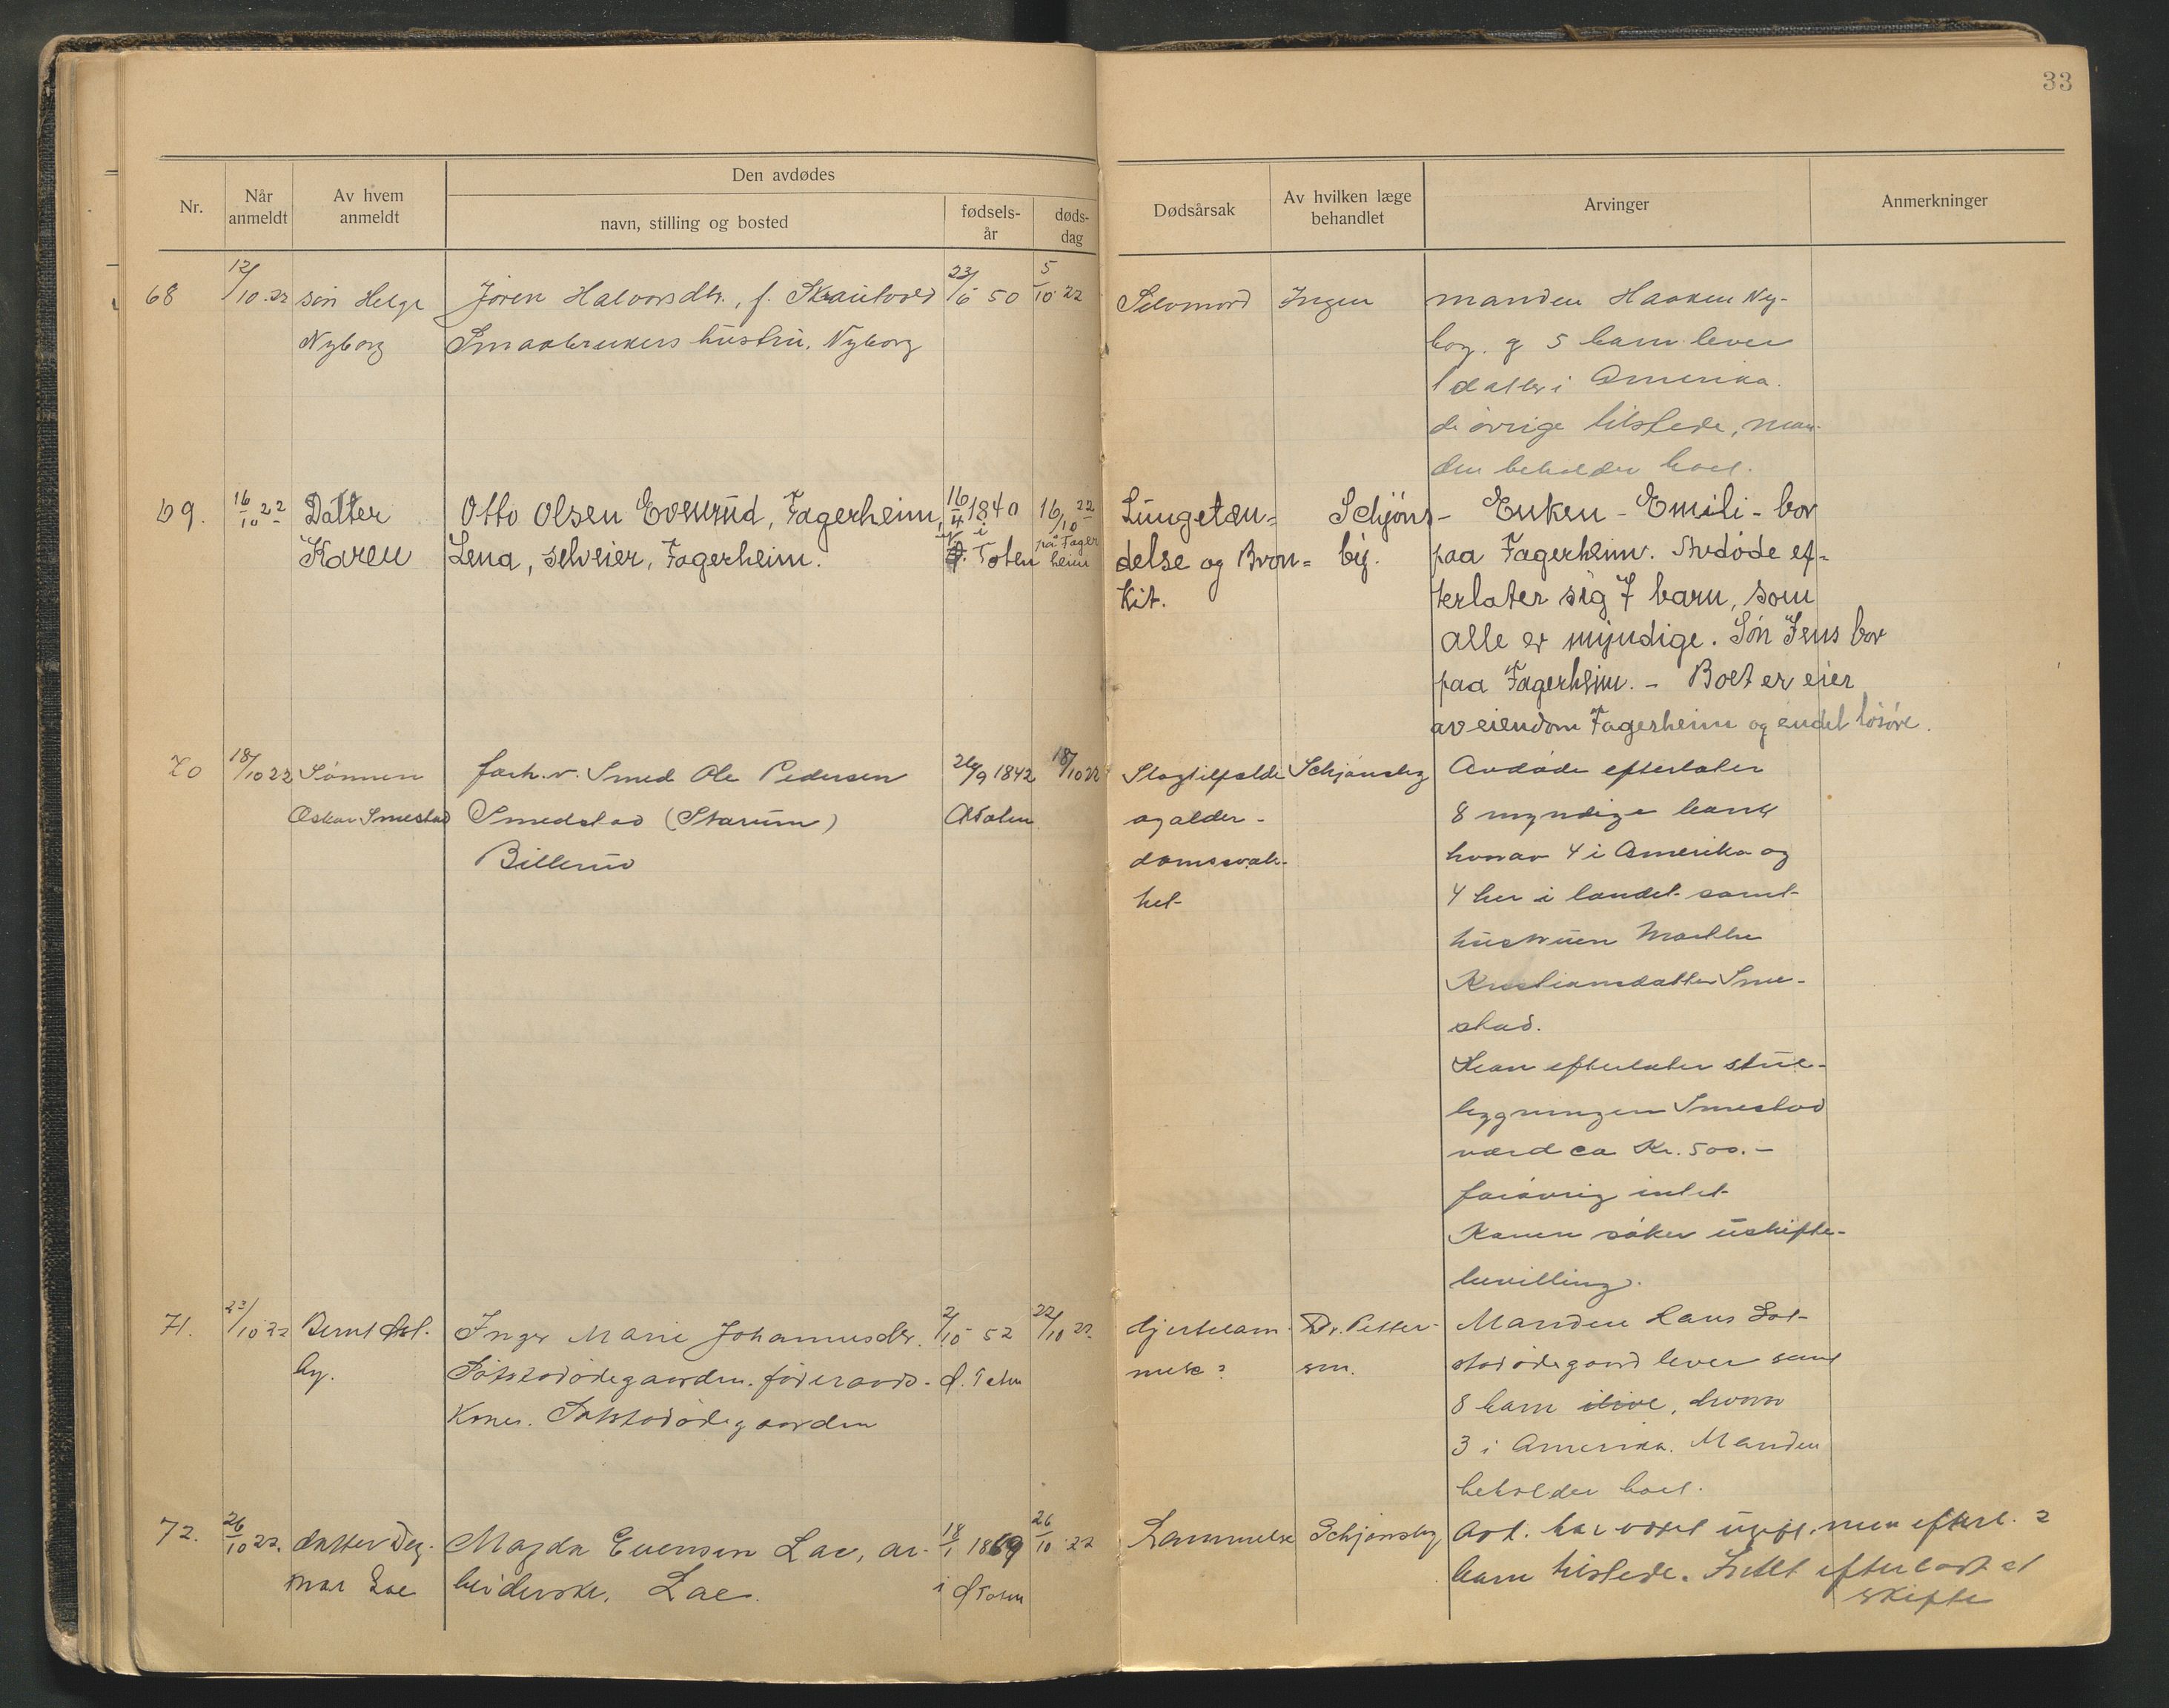 33
Den avdødes
Nr.
Når anmeldt
Av hvem anmeldt
navn, stilling og bosted
fødsels-år
døds-dag
Dødsårsak
Av hvilken læge behandlet
Arvinger
Anmerkninger
68
12/10.22
søn Helge
Nyborg
Joren Halvorsdtr., f.
Smaabrukers hustru, Nyborg
23/6 50
5/10 22
Selvmord
Ingen
manden Haaken Ny-
borg. g 5 barn lever
1 datter i Amerika.
de øvrige tilstede, man-
den beholder boet.
69.
16/10 22
Datter
Karen
Otto Olsen Evenrud, Fagerheim,
Lena, selveier, Fagerheim.
16/4 1840
i
Ø. Toten
16/10 22
på Fager
heim
Lungetæn=
delse og Bron=
kit.
Schjøns-
by.
Enken - Emili - bor
paa Fagerheim. Avdøde ef=
terlater sig 7 barn, som
alle er myndige. Søn Jens bor
paa Fagerheim. - Boet er eier
av eiendom Fagerheim og endel løsøre.
70
18/10 22
Sønnen
Oskar Smestad
forh.v. Smed Ole Pedersen
Smedstad (Starum)
Billerud
26/9 1842
ØToten
18/10 22
Slagtilfælde
og alder-
domssvak-
het
Schjønsby
Avdøde efterlater
8 myndige barn
hvorav 4 i Amerika og
4 her i landet samt
hustruen Marthe
Kristiansdatter Sme-
stad.
Han efterlater stue-
bygningen Smestad
værd ca Kr. 500.-
forøvrig intet
Konen søker uskifte-
bevilling.
71.
23/10 22
Bernt
by.
Inger Marie Johannesdtr.
Sotstadødegaarden. føderaads-
Kone. Sotstadødegaarden
2/10 52
Ø. Toten
22/10 22
Hjertelam-
melse?
Dr. Petter-
sen.
Manden Hans Sot-
stadødegaard lever samt
8 barn ilive, hvorav
3 i Amerika. Manden
beholder boet.
72.
26/10 22.
datter Dag-
mar Lae
Magda Evensen Lae, ar-
beiderske, Lae.
18/1 1869
i ØToten
26/10 22
Lammelse
Schjønsby
Avd. har været ugift, men efterl. 2
barn tilstede. Intet efterladt at
skifte